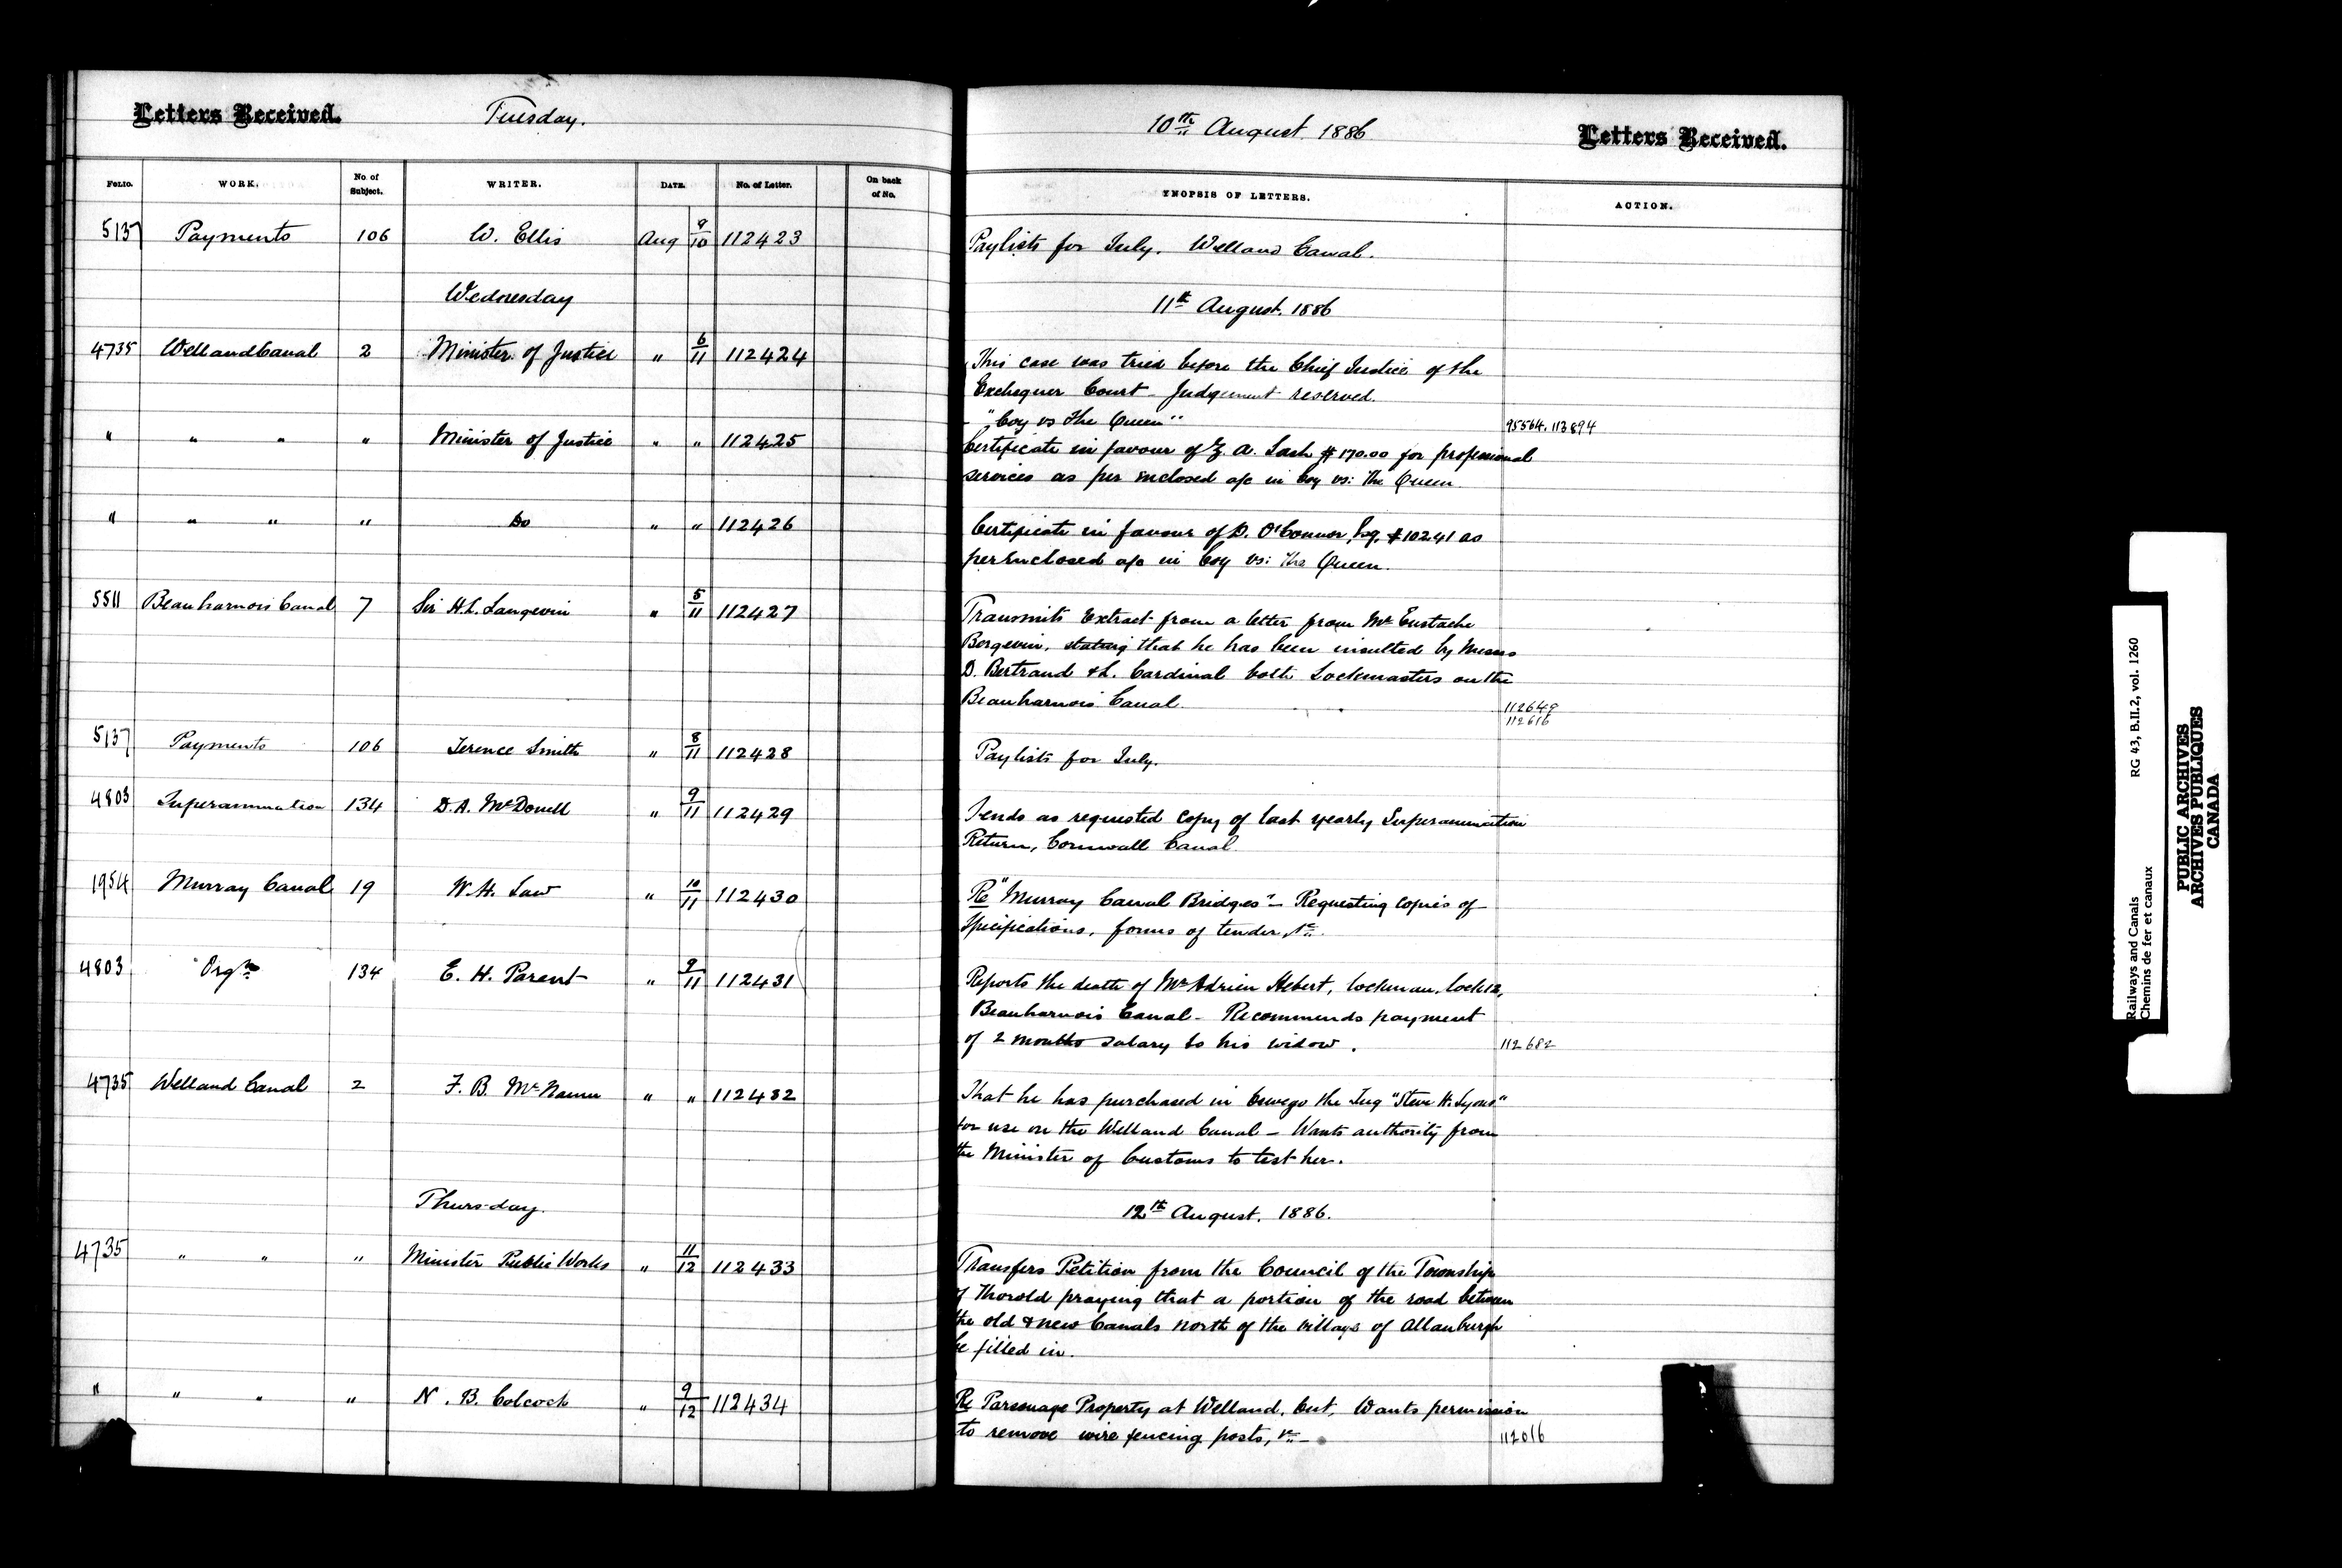 Letters Received. Tuesday. 10th August. 1886 Letters Received.
FOLIO. WORK. No. of Subject. WRITER. DATE. No. of Letter. On back of No. SYNOPSIS OF LETTERS. ACTION.
5137 Payments 106 W. Ellis Aug 9/10 112423 Paylists for July. Welland Canal.
Wednesday 11th August. 1886
4735 Welland Canal 2 Minister of Justice " 6/11 112424 This case was tried before the Chief Justice of the
Exchequer Court - Judgement reserved.
- "Coy vs The Queen" 95564. 113894
" " " " Minister of Justice " " 112425 Certificate in favour of Z. A. Lash $170.00 for professional
services as per enclosed a/c in Coy vs: The Queen
" " " " Do " " 112426 Certificate in favour of D. O'Connor, Esq. $102.41 as
per enclosed a/c in Coy vs: The Queen.
5511 Beauharnois Canal 7 Sir H. L. Langevin " 5/11 112427 Transmits Extract from a letter from Mr Eustache
Bergevin, stating that he has been insulted by Messrs
D. Bertrand & L. Cardinal both Lockmasters on the
Beauharnois Canal. 112649
112616
5137 Payments 106 Terence Smith " 8/11 112428 Paylists for July.
4803 Superannuation 134 D. A. McDonell " 9/11 112429 Sends as requested copy of last yearly Superannuation
Return, Cornwall Canal.
1954 Murray Canal 19 W. H. Law " 10/11 112430 Re "Murray Canal Bridges" - Requesting copies of
Specifications, forms of tender, &c.
4803 Orgn 134 E. H. Parent " 9/11 112431 Reports the death of Mr Adrien Hebert, lockman, Lock 12,
Beauharnois Canal - Recommends payment
of 2 months salary to his widow. 112682
4735 Welland Canal 2 F. B. McNamee " " 112432 That he has purchased in Oswego the Tug "Steve H. Lyons"
for use on the Welland Canal - Wants authority from
the Minister of Customs to test her.
Thursday. 12th August. 1886.
4735 " " " Minister Public Works " 11/12 112433 Transfers Petition from the Council of the Township
of Thorold praying that a portion of the road between
the old & new Canals north of the village of Allanburgh
be filled in.
" " " " N. B. Colcock " 9/12 112434 Re Parsonage Property at Welland, Ont, Wants permission
to remove wire fencing posts, &c - 112016
RG 43, B.II.2, vol. 1260
Railways and Canals
Chemins de fer et canaux
PUBLIC ARCHIVES
ARCHIVES PUBLIQUES
CANADA